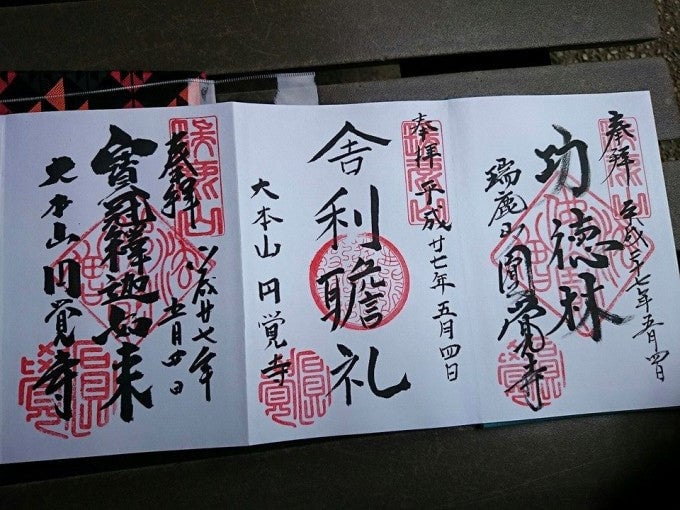 奉拝
平成廿七年五月四日
功徳林
瑞鹿山圓覚寺
奉拝 平成廿七年五月四日
舎利瞻礼
大本山 円覚寺
奉拝
平成廿七年五月四日
寶冠釋迦如来
大本山円覚寺
瑞鹿山
瑞鹿山
瑞鹿山